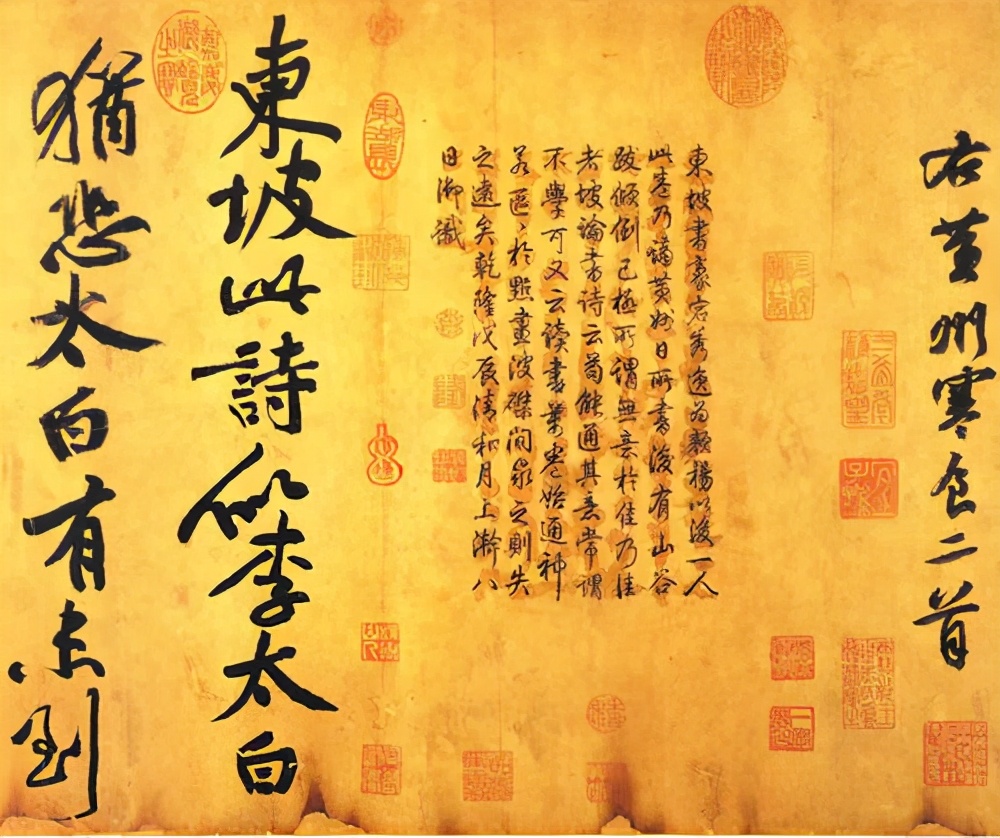 右黄州寒食二首
東坡書豪宕秀逸為顏楊以後一人
此卷乃謫黄州日所書後有山谷
跋傾倒已極所謂無意於佳乃佳
者坡論書詩云苟能通其意常謂
不學可又云讀書萬卷始通神
若區〻於點畫波磔間求之則失
之遠矣乾隆戊辰清和月上澣八
日御識
東坡此詩似李太白
猶恐太白有未到